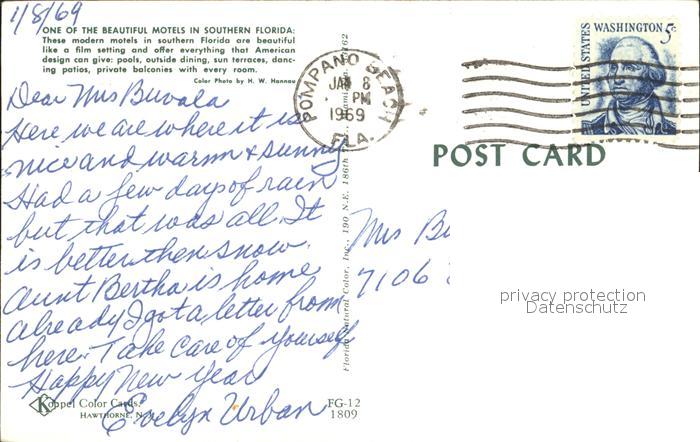 1/8/69
ONE OF THE BEAUTIFUL MOTELS IN SOUTHERN FLORIDA:
These modern motels in southern Florida are beautiful
like a film setting and offer everything that American
design can give: pools, outside dining, sun terraces, danc-
ing patios, private balconies with every room.
Color Photo by H. W. Hannau
Dear Mrs Buvala
Here we are where it is
nice and warm & sunny
Had a few days of rain
but that was all. It
is better then snow.
Aunt Bertha is home
already I got a letter from
here. Take care of yourself
Happy New Year
Evelyn Urban
Koppel Color Cards
HAWTHORNE, N.
FG-12
1809
Florida Natural Color, Inc., 190 N.E. 186th
POMPANO BEACH
JAN 8
PM
1969
FLA.
UNITED STATES
WASHINGTON 5c
POST CARD
Mrs Bu
7106
privacy protection
Datenschutz